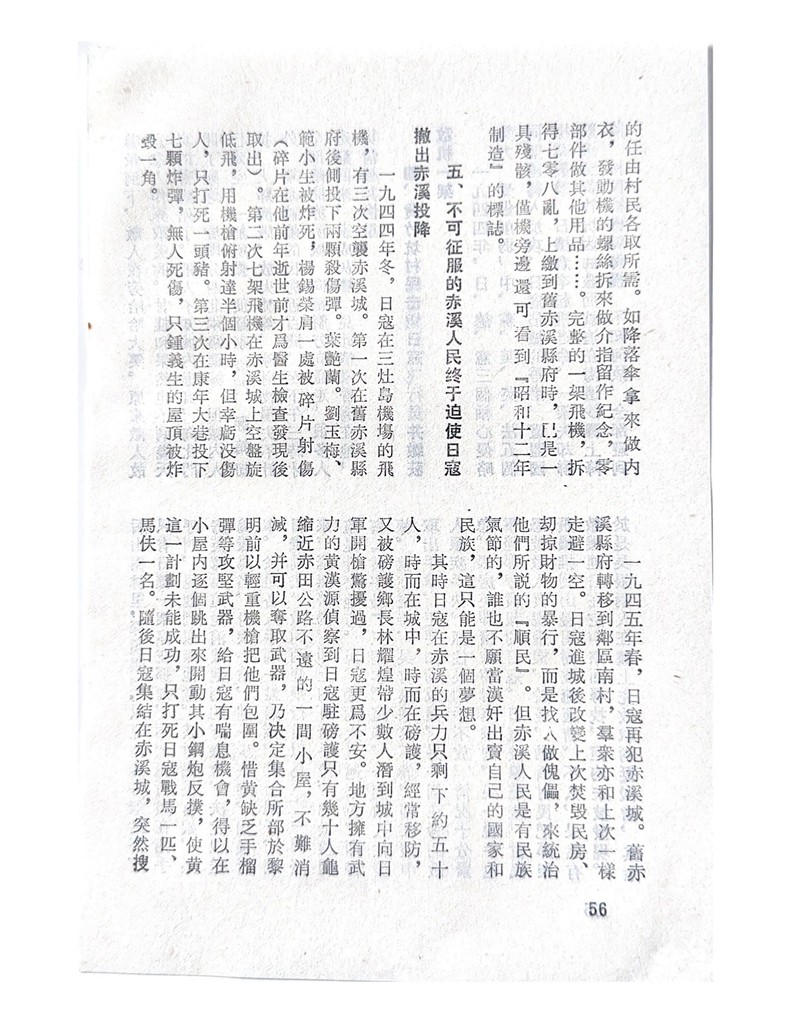 的任由村民各取所需。如降落傘拿來做內
衣，發動機的螺絲拆來做介指留作紀念，零
部件做其他用品……。完整的一架飛機，拆
得七零八亂，上繳到舊赤溪縣府時，已是一
具殘骸，僅機旁邊還可看到『昭和十二年
制造』的標誌。
五、不可征服的赤溪人民终于迫使日寇
撤出赤溪投降
一九四四年冬，日寇在三灶島機塲的飛
機，有三次空襲赤溪城。第一次在舊赤溪縣
府後側投下兩顆殺傷彈。葉艷蘭。劉玉梅、
範小生被炸死，楊錫榮肩一處被碎片射傷
（碎片在他前年逝世前才爲醫生檢查發現後
取出）。第二次七架飛機在赤溪城上空盤旋
低飛，用機槍俯射達半個小時，但幸虧没傷
人，只打死一頭豬。第三次在康年大巷投下
七顆炸彈，無人死傷，只鍾義生的屋頂被炸
毁一角。
一九四五年春，日寇再犯赤溪城。舊赤
溪縣府轉移到鄰區南村，羣衆亦和上次一樣
走避一空。日寇進城後改變上次焚毁民房、
刧掠財物的暴行，而是找人做傀儡，來統治
他們所説的『順民』。但赤溪人民是有民族
氣節的，誰也不願當漢奸出賣自己的國家和
民族，這只能是一個夢想。
其時日寇在赤溪的兵力只剩下約五十
人，時而在城中，時而在磅護，經常移防，
又被磅護鄉長林耀煌帶少數人潛到城中向日
軍開槍驚擾過，日寇更爲不安。地方擁有武
力的黄漢源偵察到日寇駐磅護只有幾十人龜
缩近赤田公路不遠的一間小屋，不難消
滅，并可以奪取武器，乃决定集合所部於黎
明前以輕重機槍把他們包圍。惜黄缺乏手榴
彈等攻堅武器，給日寇有喘息機會，得以在
小屋内逐個跳出來開動其小鋼炮反撲，使黄
這一計劃未能成功，只打死日寇戰馬一匹、
馬伕一名。隨後日寇集結在赤溪城，突然搜
56